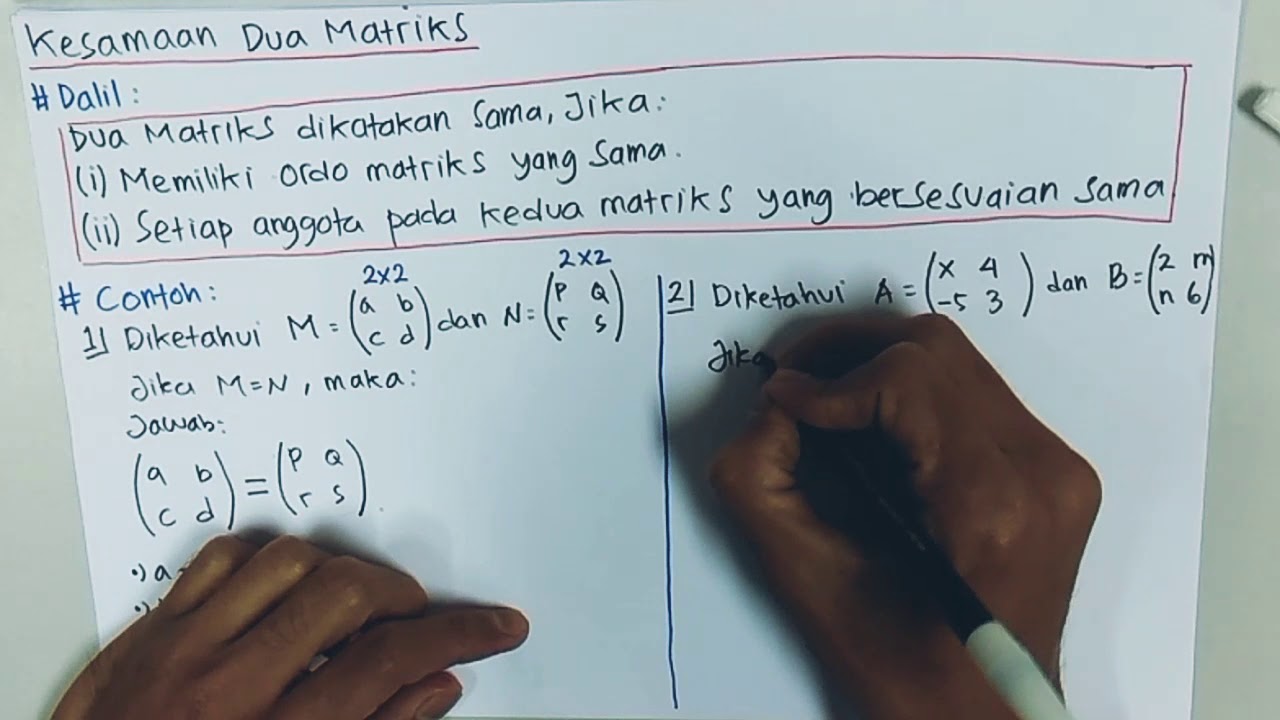 Kesamaan Dua Matriks
# Dalil:
Dua Matriks dikatakan sama, Jika:
(i) Memiliki Ordo matriks yang sama.
(ii) Setiap anggota pada kedua matriks yang bersesuaian sama
# Contoh:
2x2 2x2
1) Diketahui M = (a b
c d) dan N = (p Q
r s)
Jika M=N, maka:
Jawab:
(a b
c d) = (p Q
r s)
•) a
•)
2) Diketahui A = (x 4
-5 3) dan B = (2 m
n 6)
Jika